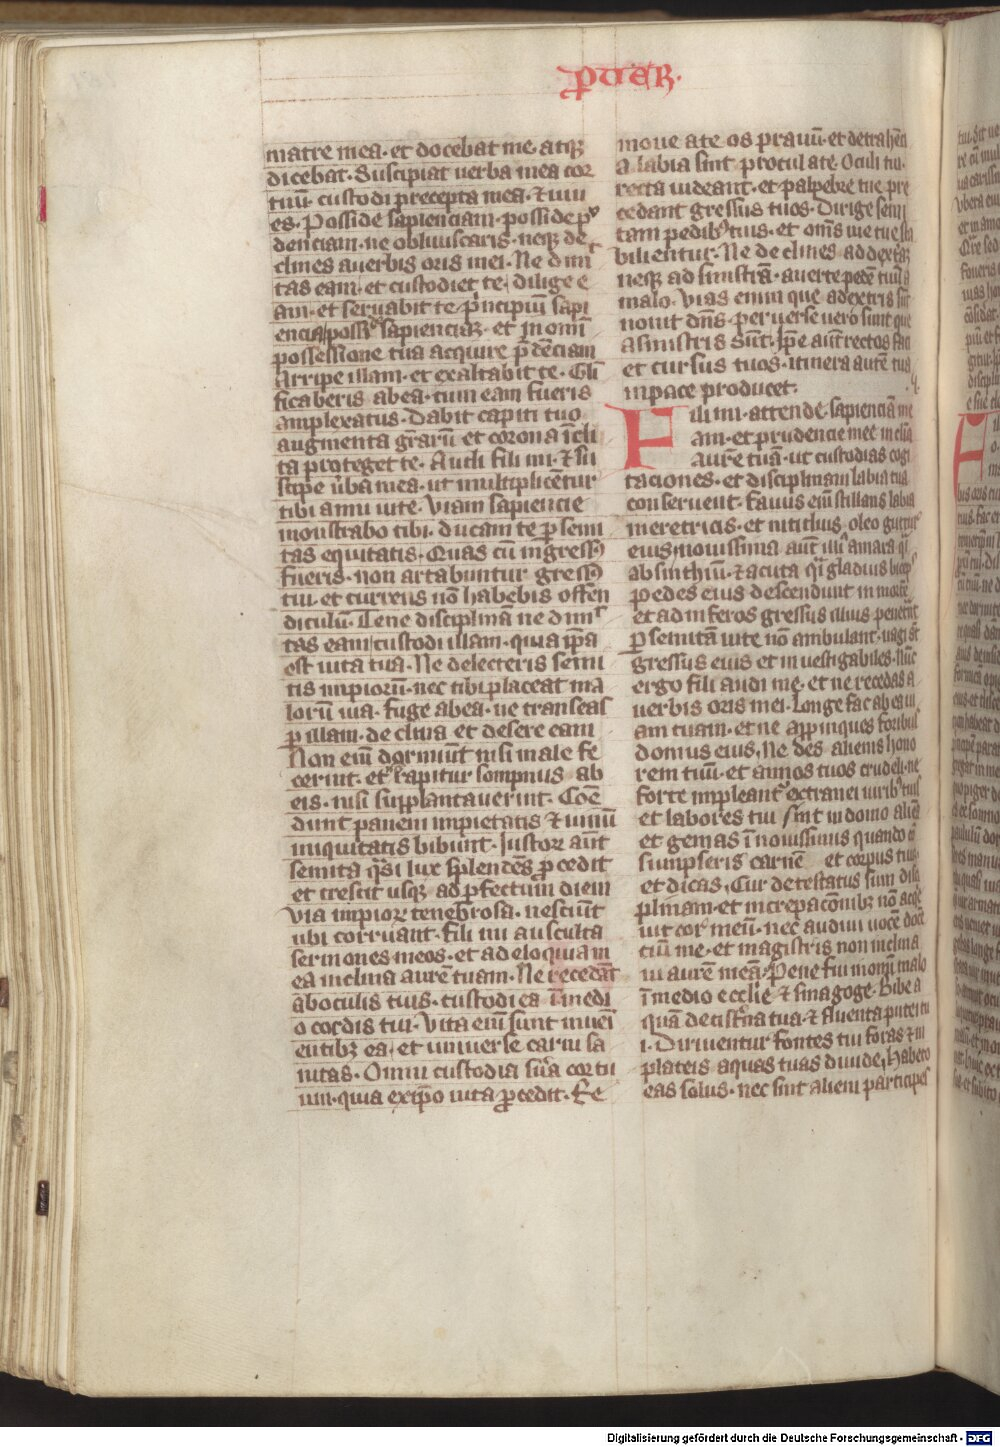 ꝓuer̃.
matre mea · et docebat me · atqꝫ
dicebat · Suscipiat uerba mea cor
tuũ · custodi precepta mea · ⁊ uiu
es · Posside sapienciam · posside pͬu
denciam · ne obliuiscaris · neqꝫ de
clines a uerbis oris mei · Ne dimit
tas eam · et custodiet te · dilige e
am · et seruabit te · pͥncipiũ sapi
encie posside sapienciã · et in omĩ
possessione tua acquire pͬdẽciam
Arripe illam · et exaltabit te · Glͥi
ficaberis ab ea · cum eam fueris
amplexatus · Dabit capiti tuo
augmenta gr̃arũ et corona ĩcli
ta proteget te · Audi fili mi · ⁊ su
scipe ũba mea · ut multiplicẽtur
tibi anni uite · Viam sapiencie
monstrabo tibi · ducam te ꝑ semi
tas equitatis · Quas cũ ingressꝰ
fueris · non artabuntur gressꝰ
tui · et currens nõ habebis offen
diculũ · Tene disciplinã ne dimit
tas eam custodi illam · quia ip̃a
est uita tua · Ne delecteris semi
tis impiorũ · nec tibi placeat ma
lorũ uia · fuge ab ea · ne transeas
ꝑ illam · declina et desere eam
Non eñi dormiũt nisi male fe
cerint · et rapitur sompnus ab
eis · nisi supplantauerint · Come
dunt panem impietatis ⁊ uinũ
iniquitatis bibunt · Justoꝝ aũt
semita qͣsi lux splendẽs ꝓcedit
et crescit usqꝫ ad ꝑfectum diem
Via impioꝝ tenebrosa · nesciũt
ubi corruant · fili mi ausculta
sermones meos · et ad eloquia m
ea inclina aurẽ tuam · Ne recedãt
ab oculis tuis · custodi ea ĩ medi
o cordis tui · Vita eñi sunt inueni
entibꝫ ea · et uniuerse carni sa
nitas · Omni custodia ẜua cor tu
um · quia ex ip̃o uita ꝓcedit · Re
moue a te os prauũ · et detrahẽci
a labia sint procul a te · Oculi tui
recta uideant · et palpebre tue pre
cedant gressus tuos · Dirige semi
tam pedibꝰ tuis · et om̃s uie tue sta
bilientur · Ne declines ad dexterã
neqꝫ ad sinistrã · auerte pedẽ tuũ a
malo · Vias enim que a dextris sũt
nouit dñs · peruerse uero sunt que
a sinistris sũt · Ip̃e aũt rectos faci
et cursus tuos · itinera autẽ tua
in pace producet ·
Fili mi · attende · sapienciã me
am · et prudencie mee inclina
aurẽ tuã · ut custodias cogi
taciones · et disciplinam labia tua
conseruent · Fauus eñi stillans labia
meretricis · et nitidius oleo guttur
eius · nouissima aũt illiꝰ amara qͣi
absinthiũ · ⁊ acuta qͣi gladius biceps
pedes eius descendunt in mortẽ
et ad inferos gressus illius penetrãt
ꝑ semitã uite nõ ambulant · uagi sũt
gressus eius et inuestigabiles · Nũc
ergo fili audi me · et ne recedas a
uerbis oris mei · Longe fac ab ea ui
am tuam · et ne appinques foribus
domus eius · Ne des alienis hono
rem tuũ · et annos tuos crudeli · ne
forte impleantͬ extranei uiribꝰ tuis
et labores tui sint in domo aliena
et gemas ĩ nouissimis quando cõ
sumpseris carnẽ et corpus tuũ
et dicas · Cur detestatus sum disci
plinam · et increpacõnibꝫ nõ acqe
uit cor meũ · nec audiui uocẽ docẽ
ciũ me · et magistris non inclina
ui aurẽ meã · Pene fui in omĩ malo
ĩ medio ecclẽie ⁊ sinagoge · Bibe a
quã de cist̃na tua · ⁊ fluenta putei tu
i · Diriuentur fontes tui foras ⁊ in
plateis aquas tuas diuide · Habeto
eas solus · nec sint alieni participes
Digitalisierung gefördert durch die Deutsche Forschungsgemeinschaft - DFG